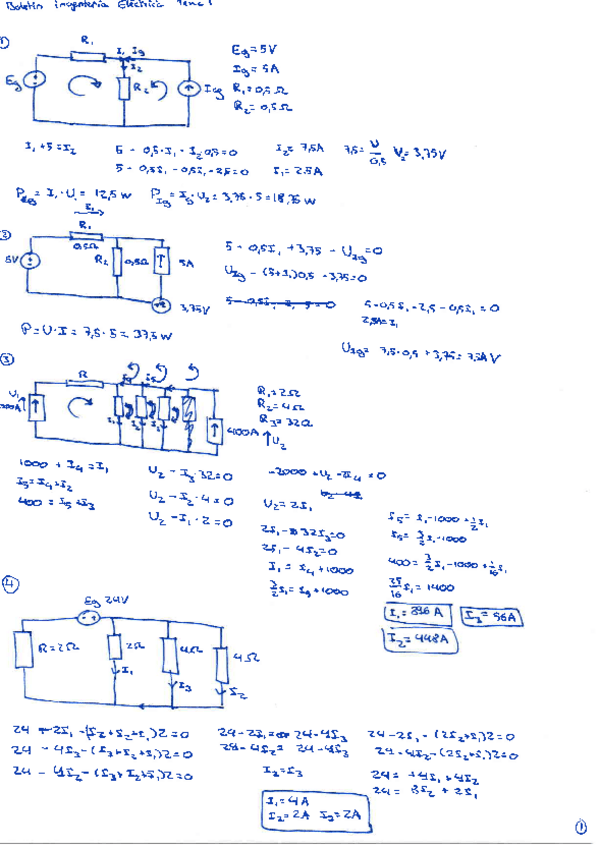 Boletín ingeniería Eléctrica Tema 1
①
R₁
I₁ Ig
I₂
Eg
R₂
Ig
Eg = 5V
Ig = 5A
R₁ = 0,5 Ω
R₂ = 0,5 Ω
I₁ + 5 = I₂
5 - 0,5·I₁ - I₂·0,5 = 0
I₂ = 7,5A
7,5 = U/0,5
U₂ = 3,75V
5 - 0,5I₁ - 0,5I₁ - 2,5 = 0
I₁ = 2,5A
P_Eg = I₁·U₁ = 12,5 W
P_Ig = Ig·U₂ = 3,75·5 = 18,75 W
②
I₁
R₁
0,5Ω
5V
R₂
0,5Ω
5A
3,75V
5 - 0,5I₁ + 3,75 - U_Ig = 0
U_Ig - (5+I₁)0,5 - 3,75 = 0
5 - 0,5I₁ - 2,5 - 0,5I₁ = 0
2,5A = I₁
P = U·I = 7,5·5 = 37,5 W
U_Ig = 7,5·0,5 + 3,75 = 7,5 V
③
R
U₁
400A
U₂
R₁ = 2Ω
R₂ = 4Ω
R₃ = 32Ω
1000 + I₄ = I₁
I₅ = I₄ + I₂
400 = I₅ + I₃
U₂ - I₃·32 = 0
U₂ - I₂·4 = 0
U₂ - I₁·2 = 0
-2000 + U₂ - I₄ = 0
U₂ = 2I₁
2I₁ - 32I₃ = 0
2I₁ - 4I₂ = 0
I₁ = I₄ + 1000
3/2 I₁ = I₅ + 1000
I₅ = I₁ - 1000 + 1/2 I₁
I₅ = 3/2 I₁ - 1000
400 = 3/2 I₁ - 1000 + 1/16 I₁
25/16 I₁ = 1400
I₁ = 896 A
I₃ = 56A
I₂ = 448A
④
Eg 24V
R = 2Ω
2Ω
4Ω
4Ω
I₁
I₃
I₂
24 - 2I₁ - (I₃+I₂+I₁)2 = 0
24 - 4I₃ - (I₃+I₂+I₁)2 = 0
24 - 4I₂ - (I₃+I₂+I₁)2 = 0
24 - 2I₁ = 24 - 4I₃
24 - 4I₂ = 24 - 4I₃
I₂ = I₃
24 - 2I₁ - (2I₂+I₁)2 = 0
24 - 4I₂ - (2I₂+I₁)2 = 0
24 = +4I₁ + 4I₂
24 = 8I₂ + 2I₁
I₁ = 4A
I₂ = 2A I₃ = 2A
①